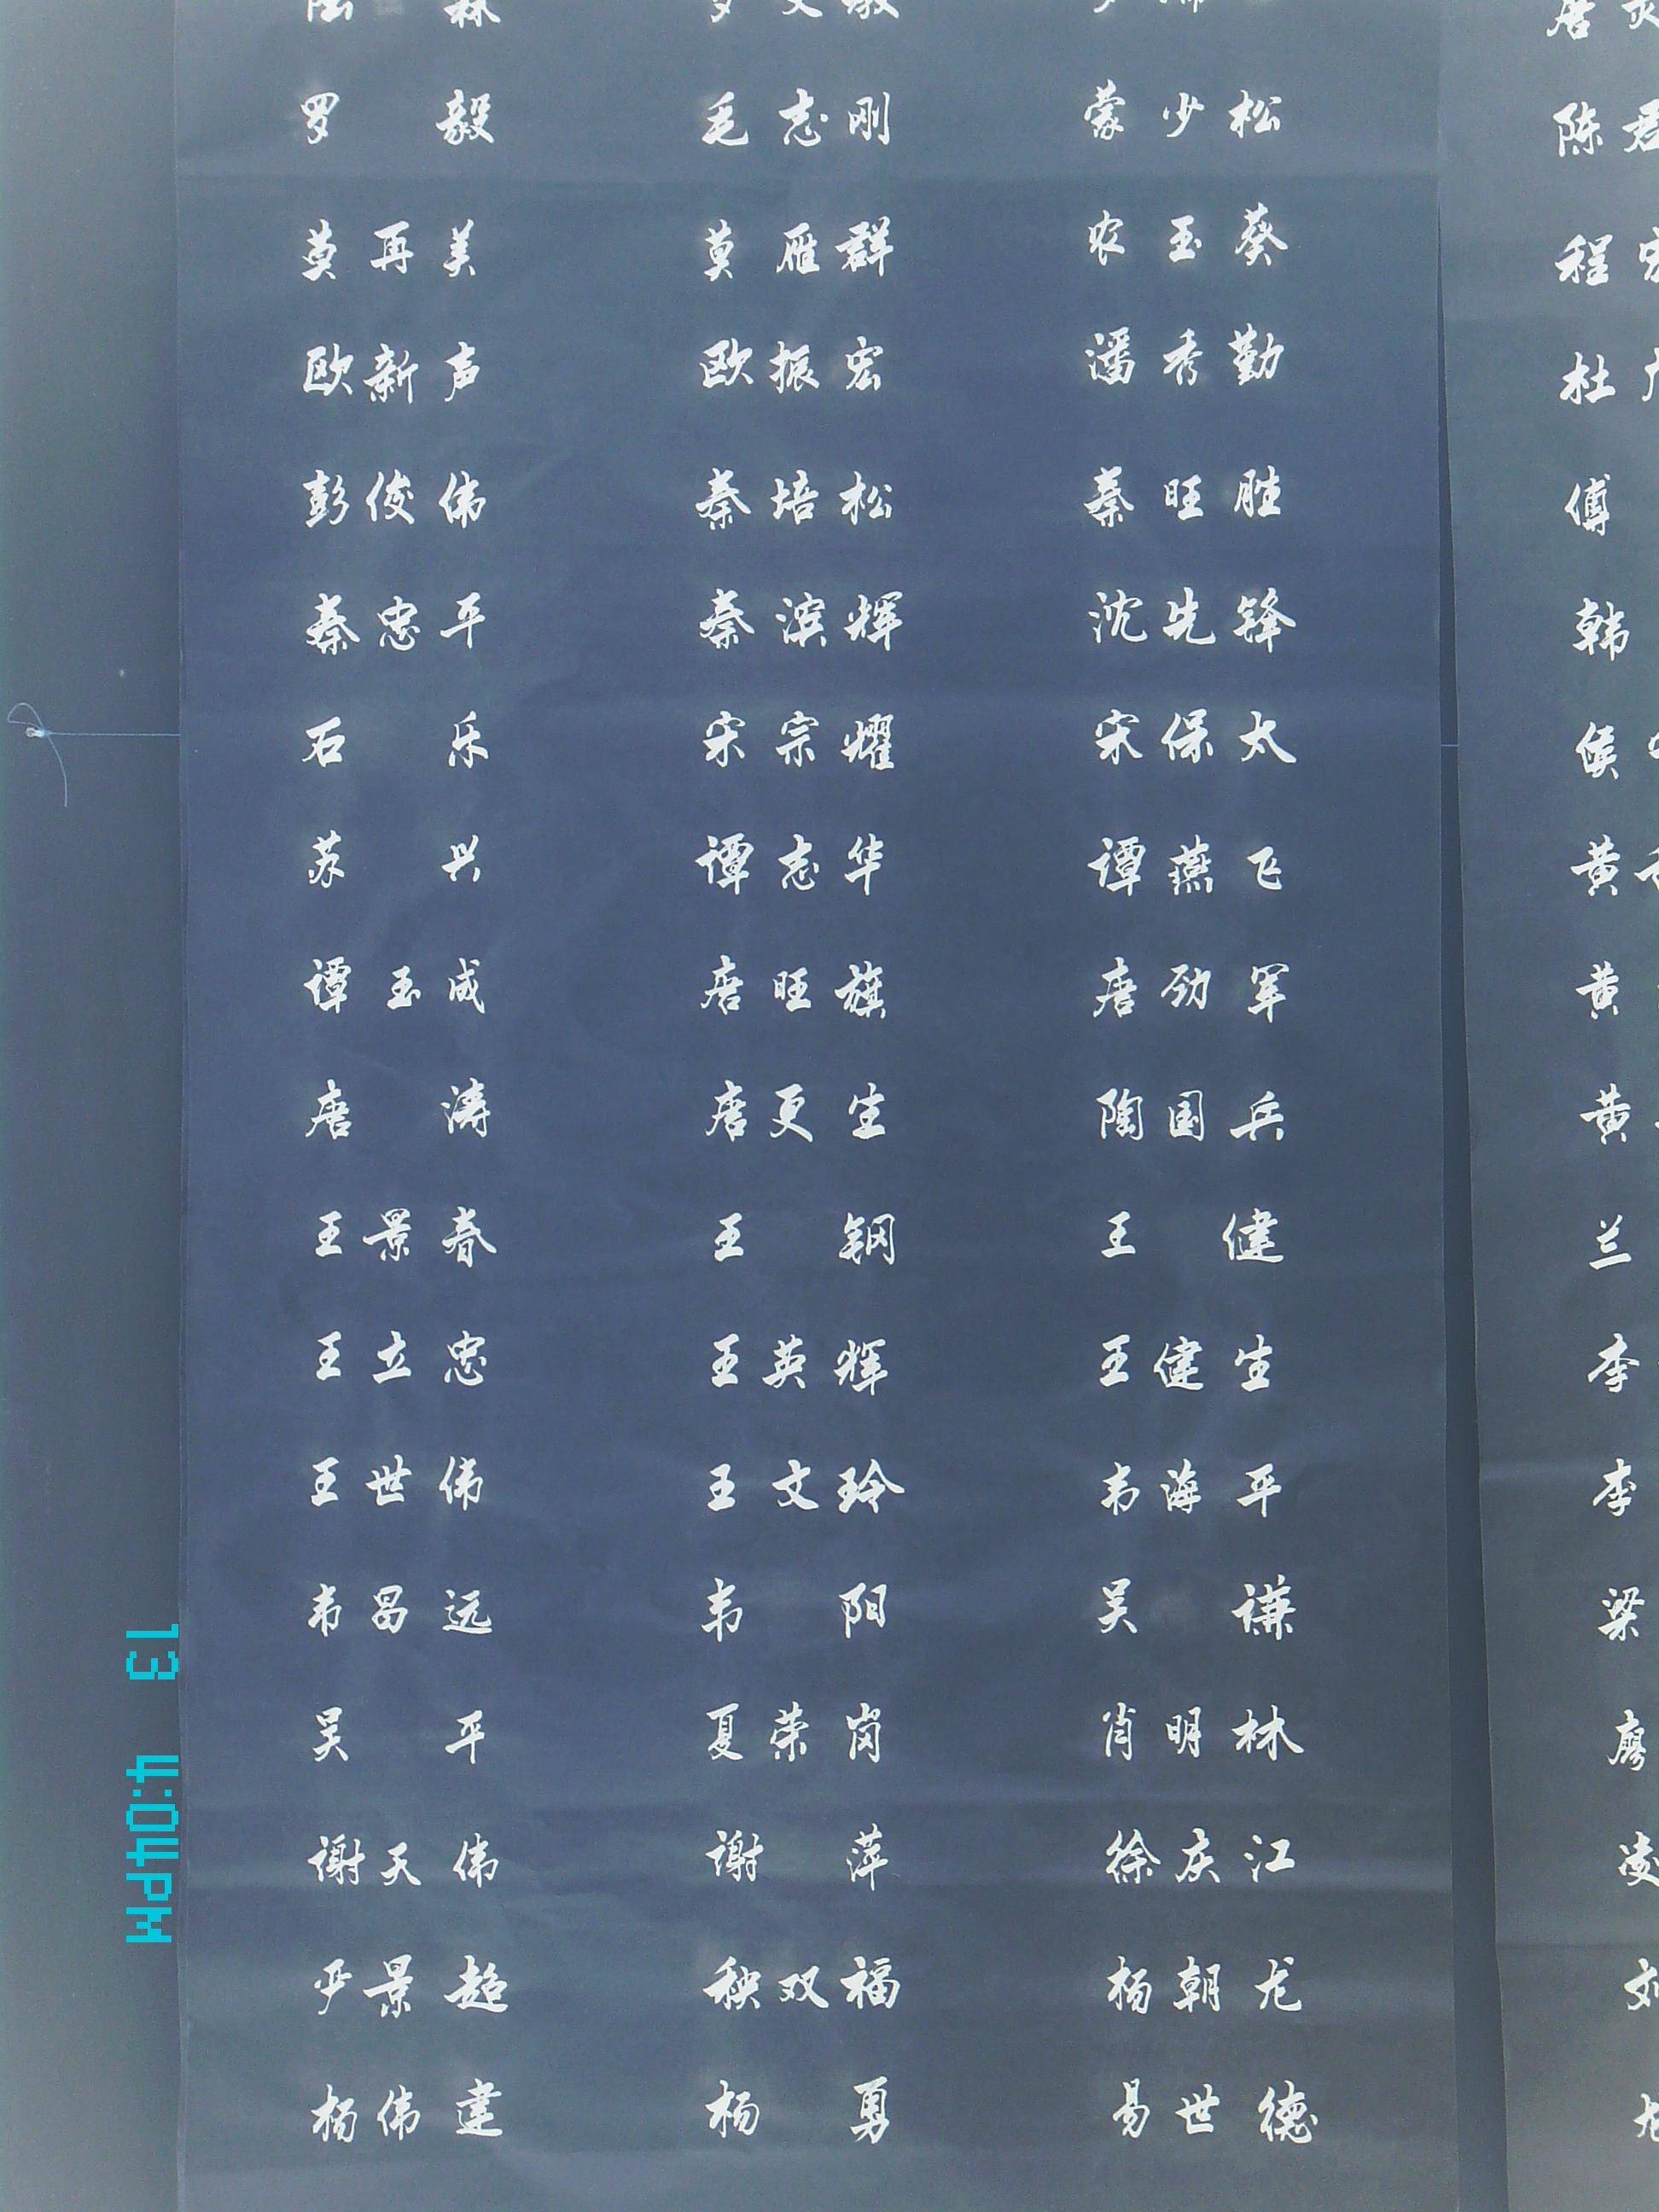 罗 毅 毛志刚 蒙少松 陈君
莫再美 莫雁群 农玉葵 程宏
欧新声 欧振宏 潘秀勤 杜
彭俊伟 秦培松 秦旺胜 傅
秦忠平 秦滨辉 沈先锋 韩
石 乐 宋宗耀 宋保太 侯
苏 兴 谭志华 谭燕飞 黄
谭玉成 唐旺旗 唐劲军 黄
唐 涛 唐更生 陶国兵 黄
王景春 王 钢 王 健 兰
王立忠 王英辉 王健生 李
王世伟 王文玲 韦海平 李
韦昌远 韦 阳 吴 谦 梁
吴 平 夏荣岗 肖明林 廖
谢天伟 谢 萍 徐庆江 凌
严景超 秧双福 杨朝龙 刘
杨伟建 杨 勇 易世德
13 4:04PM